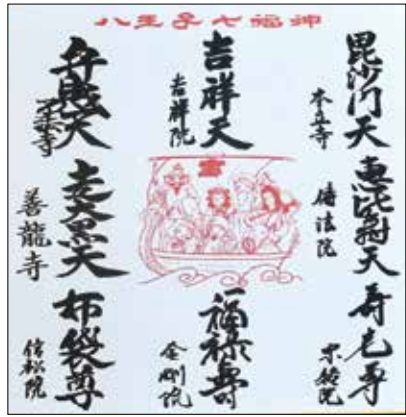 八王子七福神
毘沙門天
本立寺
惠比寿天
傳法院
寿老尊
宗格院
吉祥天
吉祥院
福禄壽
金剛院
弁財天
了法寺
走大黒天
善龍寺
布袋尊
信松院